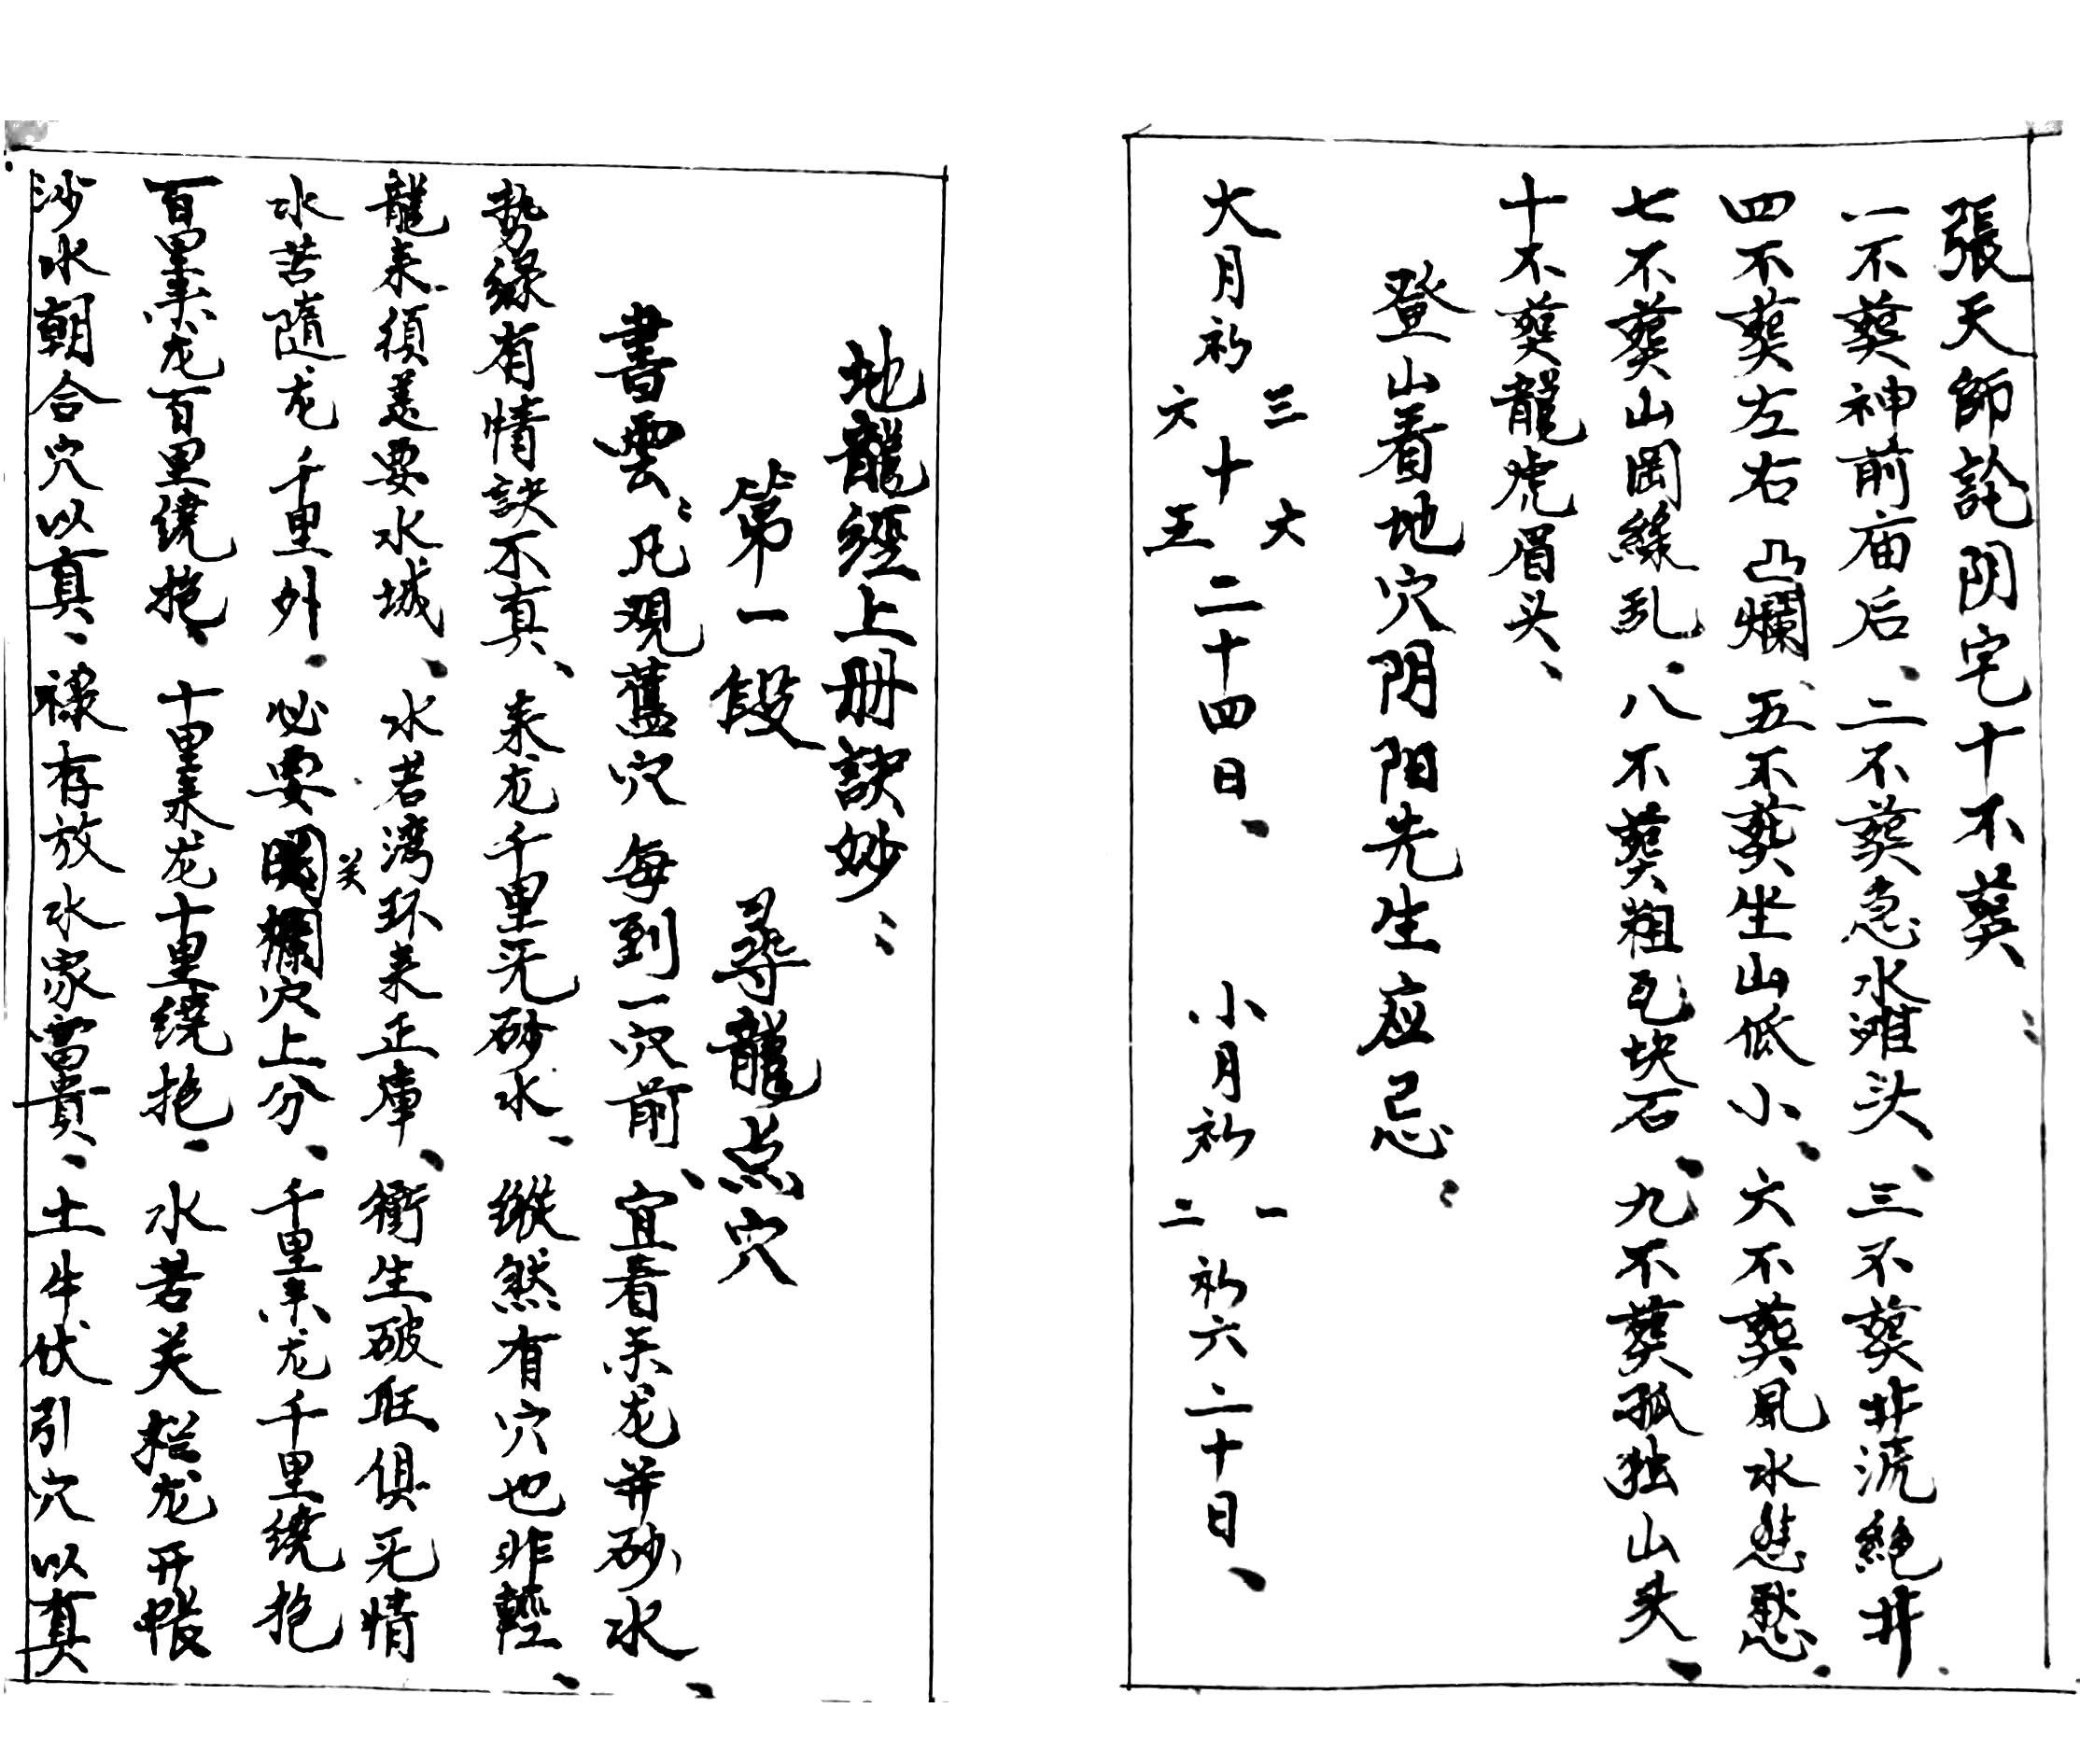 張天師論阴宅十不葵
一不葵神前庙后、二不葵急水滩头、三不葵非流絶井、
四不葵左右凸爛、五不葵坐山低小、六不葵風水愁、
七不葵山岡繚乱、八不葵粗瓦块石、九不葵孤独山头、
十不葵龍虎眉头、
登山看地穴阴阳先生应忌：
大月初三六十六五二十四日、 小月初一二初六二十日、
地龍經上冊訣妙：
第一段 尋龍点穴
書雲：凡观舊穴 每到一穴前、宜看来龙并砂水、
势缘有情訣不真、来龙千里无砂水、纵然有穴也非輕、
龍来須是要水城、水若湾环来正庫、衝生破旺俱无情
水若隨龙千里外、必要関欄穴上分、千里来龙千里繞抱
关
百里来龙百里繞抱、十里来龙十里繞抱、水若关拦龙开帳
沙水朝合穴以真、禄存放水家富貴、土牛伏引穴以真